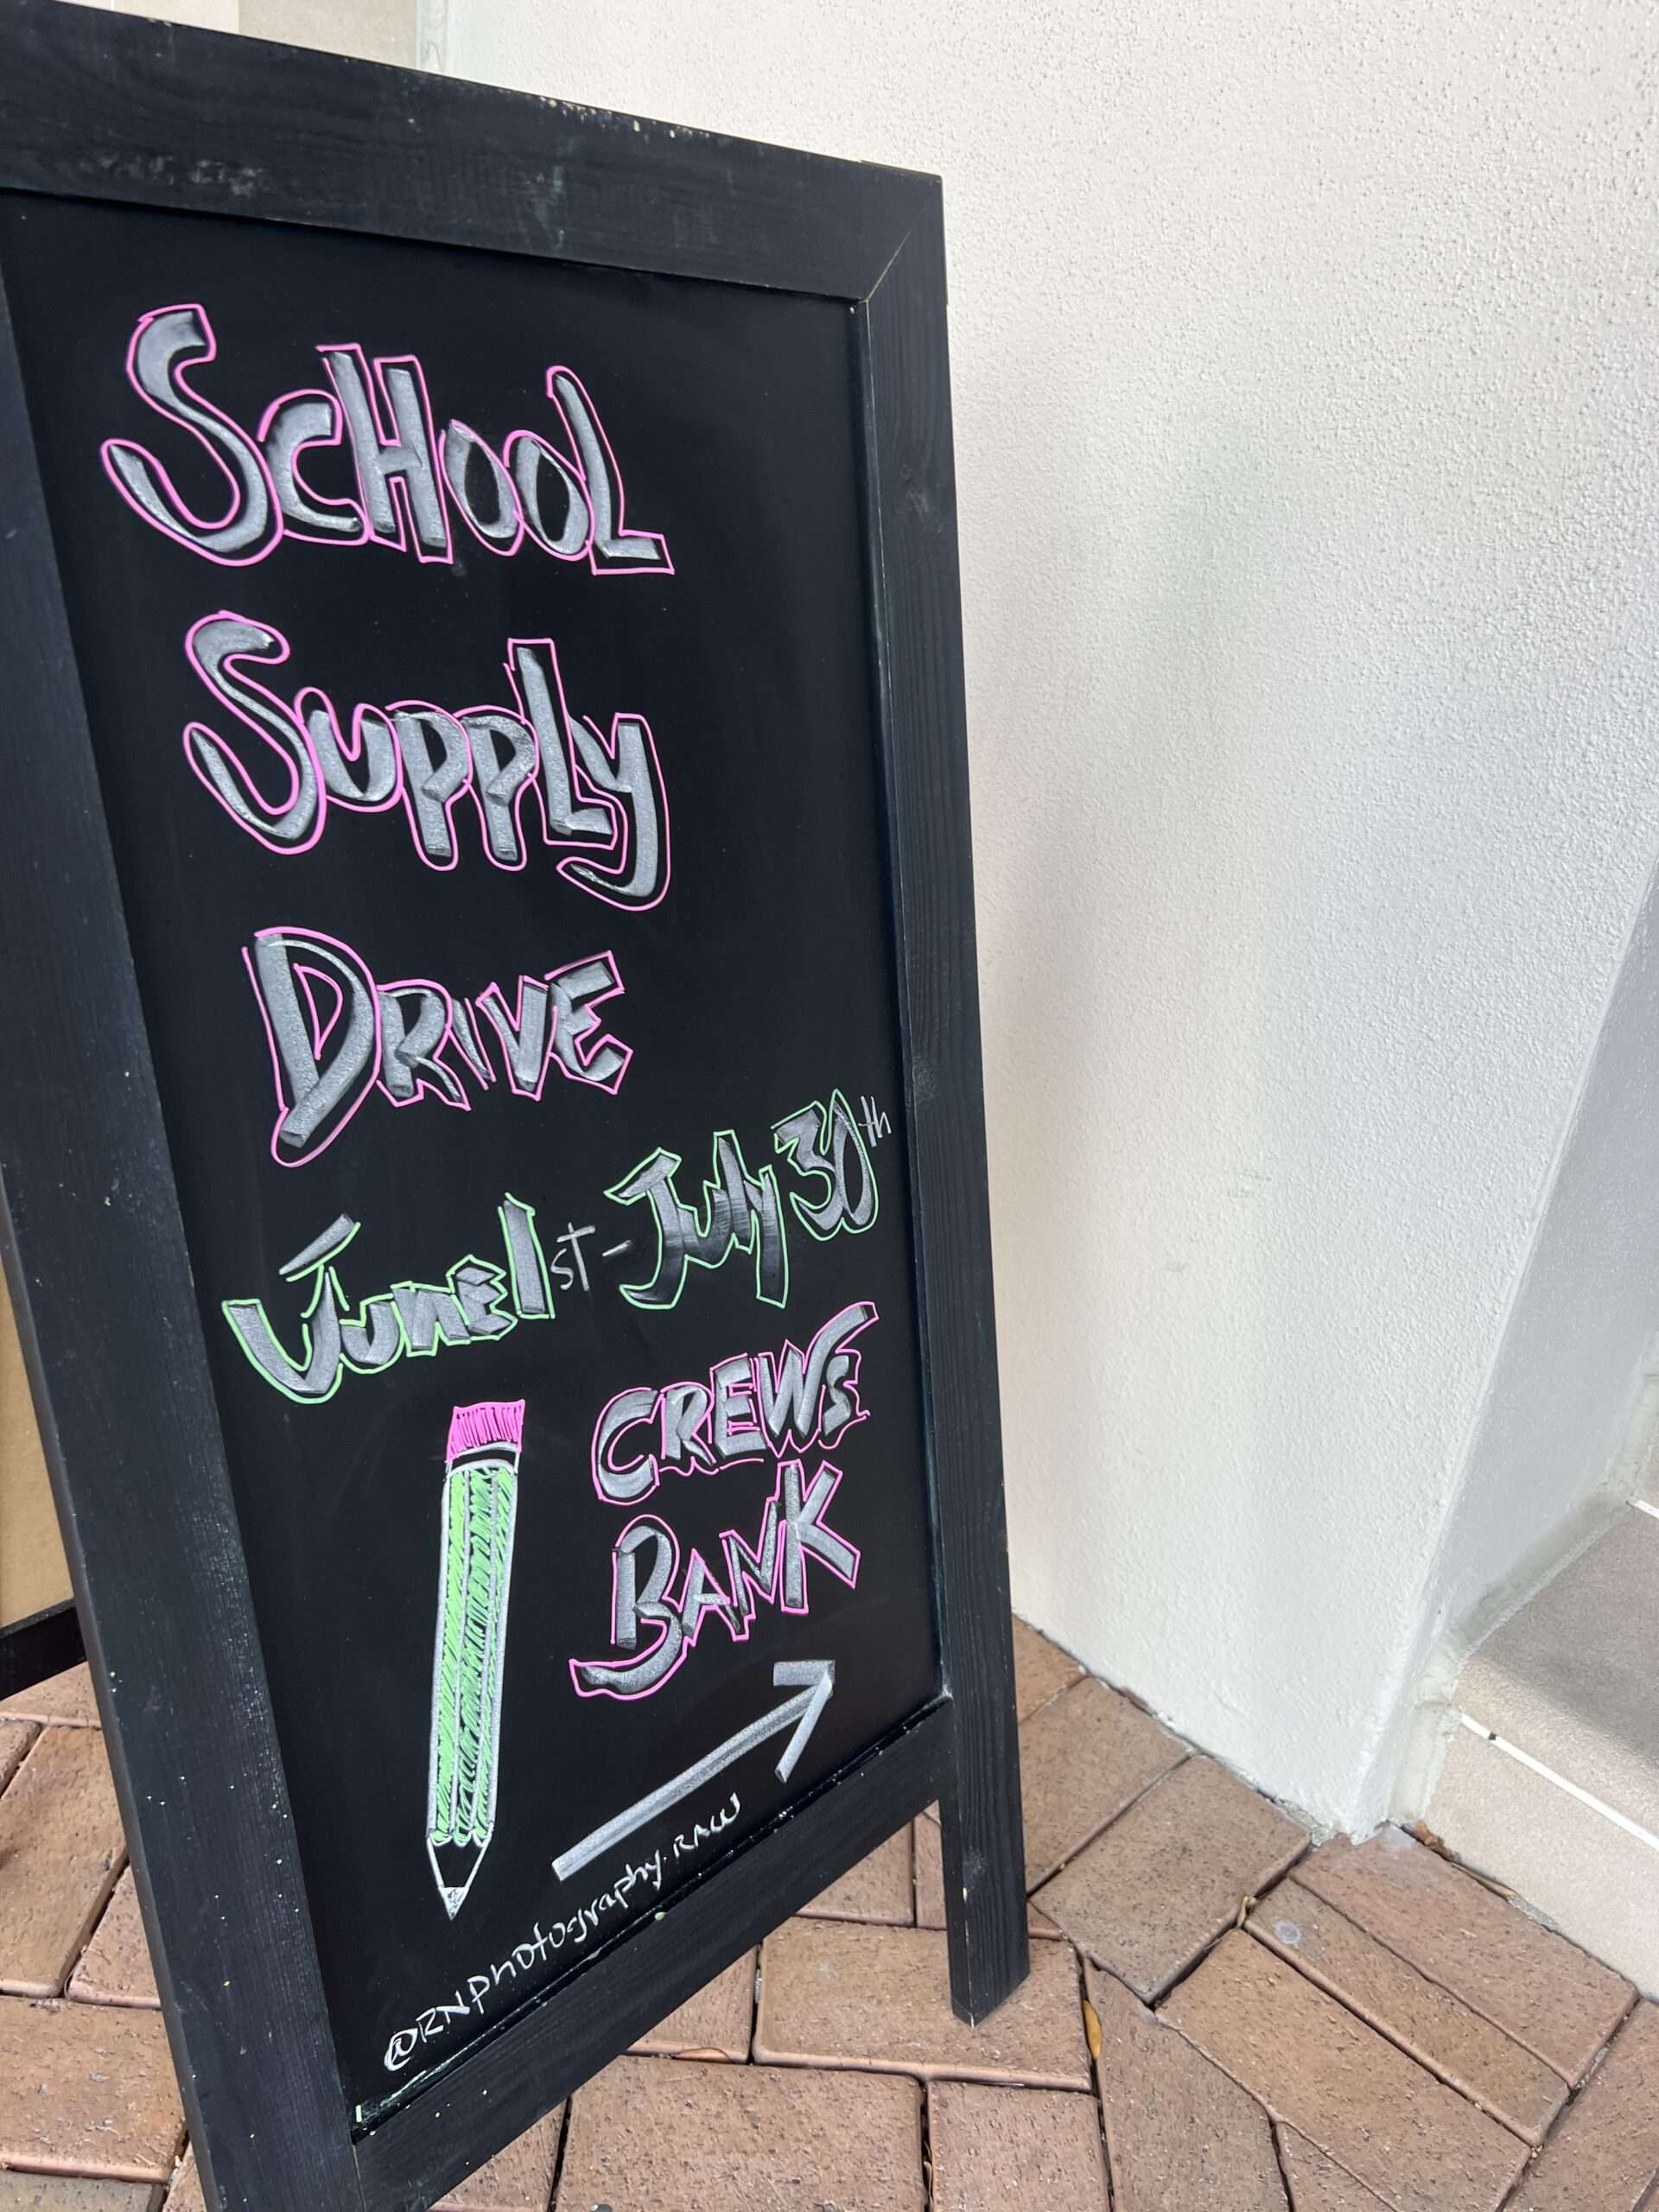 SCHOOL
SUPPLY
DRIVE
June 1st - July 30th
CREWS
BANK
@RNphotography.RAW